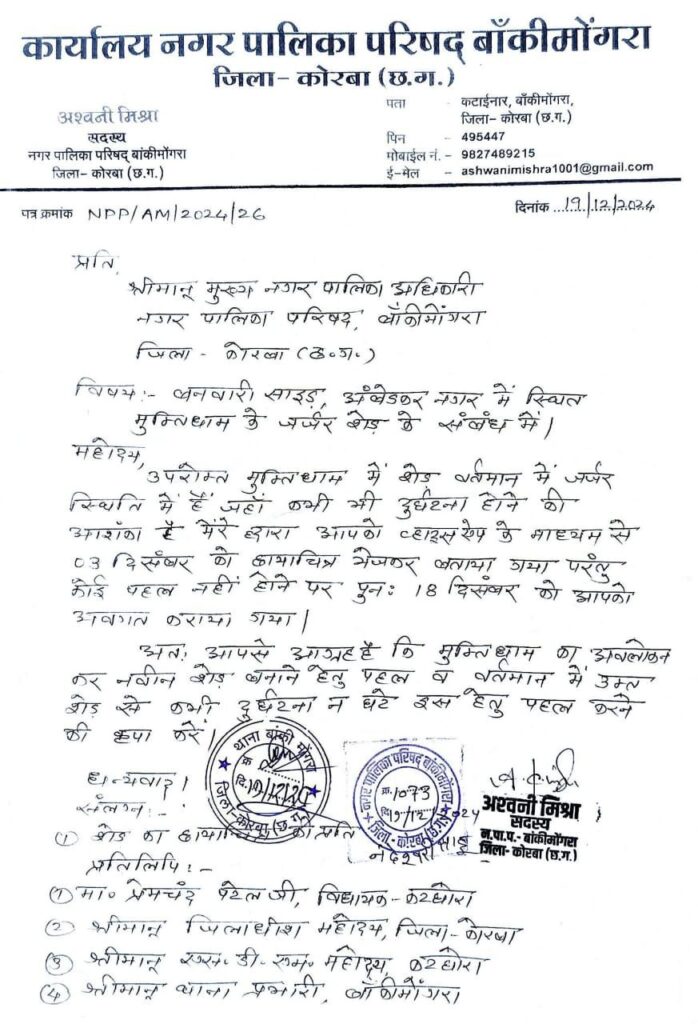 कार्यालय नगर पालिका परिषद् बाँकीमोंगरा
जिला- कोरबा (छ.ग.)
अश्वनी मिश्रा
सदस्य
नगर पालिका परिषद् बांकीमोंगरा
जिला- कोरबा (छ.ग.)
पता - कटाईनार, बाँकीमोंगरा,
जिला- कोरबा (छ.ग.)
पिन - 495447
मोबाईल नं. - 9827489215
ई-मेल - ashwanimishra1001@gmail.com
पत्र क्रमांक NPP/AM/2024/26
दिनांक 19/12/2024
प्रति,
श्रीमान् मुख्य नगर पालिका अधिकारी
नगर पालिका परिषद, बाँकीमोंगरा
जिला - कोरबा (छ.ग.)
विषय:- बनवारी साइड़, अंबेडकर नगर में स्थित
मुक्तिधाम के जर्जर शेड़ के संबंध में।
महोदय,
उपरोक्त मुक्तिधाम में शेड़ वर्तमान में जर्जर
स्थिति में हैं जहाँ कभी भी दुर्घटना होने की
आशंका है मेरे द्वारा आपको व्हाट्सऐप के माध्यम से
03 दिसंबर को छायाचित्र भेजकर बताया गया परंतु
कोई पहल नहीं होने पर पुनः 18 दिसंबर को आपको
अवगत कराया गया।
अतः आपसे आग्रह है कि मुक्तिधाम का अवलोकन
कर नवीन शेड़ बनाने हेतु पहल व वर्तमान में उक्त
शेड़ से कभी दुर्घटना न घटे इस हेतु पहल करने
की कृपा करें।
धन्यवाद।
थाना बांकी मोंगरा
जिला-कोरबा (छ.ग.)
नगर पालिका परिषद बांकीमोंगरा
क्र. 1073
जिला-कोरबा (छ.ग.)
अश्वनी मिश्रा
सदस्य
न.पा.प.- बांकीमोंगरा
जिला- कोरबा (छ.ग.)
संलग्न:-
① शेड़ का की प्रति
प्रतिलिपि:-
① मा. प्रेमचंद पटेल जी, विधायक- कटघोरा
② श्रीमान् जिलाधीश महोदय, जिला-कोरबा
③ श्रीमान् एस. डी. एम. महोदय, कटघोरा
④ श्रीमान् थाना प्रभारी, बाँकीमोंगरा